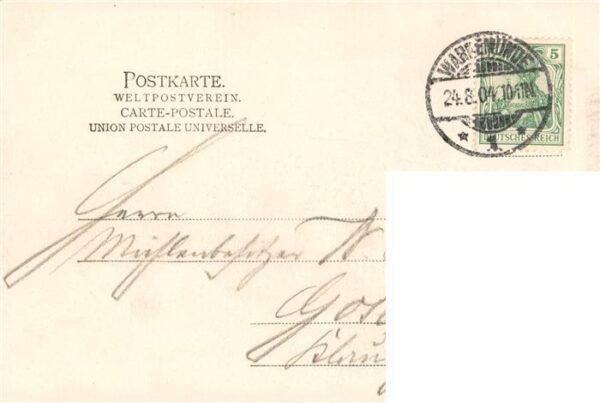 POSTKARTE.
WELTPOSTVEREIN.
CARTE-POSTALE.
UNION POSTALE UNIVERSELLE.
WARNEMÜNDE
24.8.04.10-11N
5
DEUTSCHES REICH
Herrn
Mühlenbesitzer W.